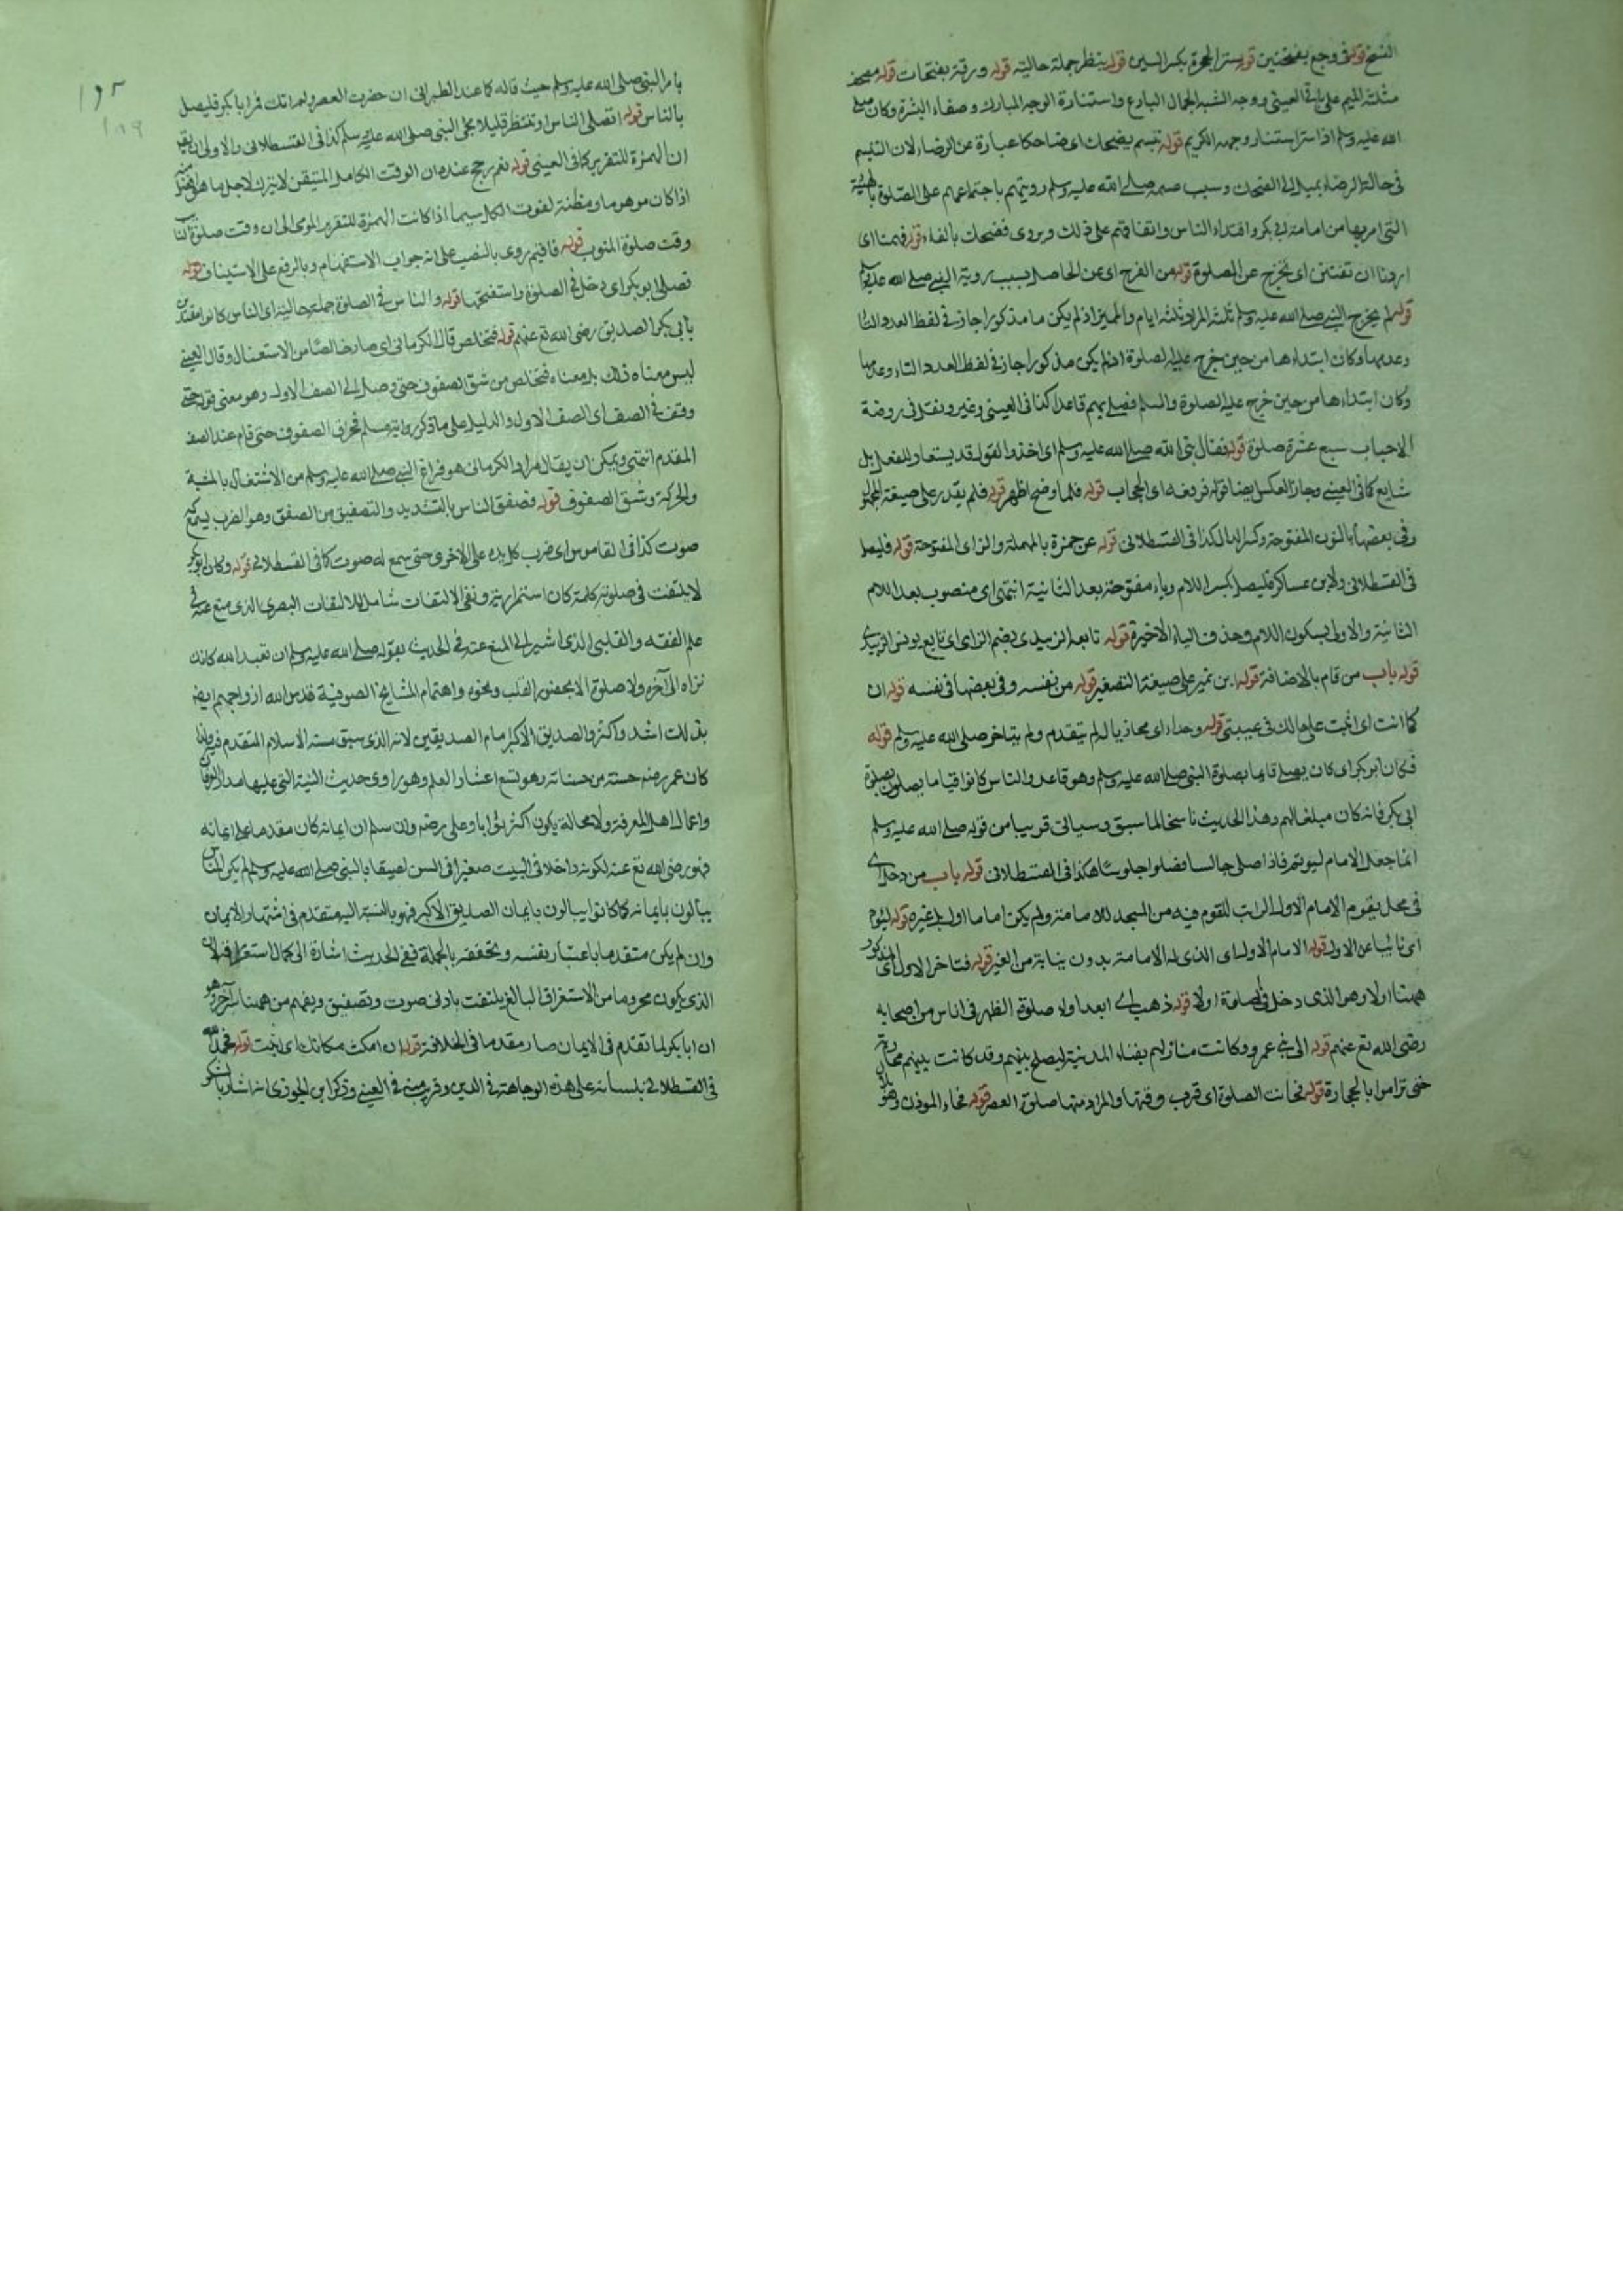 النسخ قوله في وجع بفتحتين قوله ستر الحجرة بكسر السين قوله ينظر جملة حالية قوله ورقة بفتحات قوله مصحف
مثلثة الميم على ما في العيني ووجه الشبه الجمال البارع واستنارة الوجه المبارك وصفاء البشرة وكان صلى
الله عليه وسلم اذا سر استنار وجهه الكريم قوله تبسم يضحك اى ضاحكا عبارة عن الرضاء لان التبسم
في حالة الرضاء يميل الى الضحك وسبب تبسمه صلى الله عليه وسلم رويتهم باجتماعهم على الصلوة بالهيئة
التي امر بها من امامة ابي بكر واقتداء الناس واتفاقهم على ذلك ويروى فضحك بالفاء قوله فهمنا اى
اردنا ان نفتتن اى نخرج عن الصلوة قوله من الفرح اى عن الحاصل بسبب روية النبي صلى الله عليه وسلم
قوله لم يخرج النبي صلى الله عليه وسلم ثلثة المراد ثلثة ايام والمميز اذ لم يكن مامذكورا جاز في لفظ العدد التاء
وعدمها وكان ابتداءها من حين خرج عليه الصلوة اذا لم يكن مذكورا جاز في لفظ العدد التاء وعدمها
وكان ابتداءها من حين خرج عليه الصلوة والسلم فصلى بهم قاعدا كذا في العيني وغيره ونقل في روضة
الاحباب سبع عشرة صلوة قوله فقال نبي الله صلى الله عليه وسلم اى اخذ والقول قد يستعار للفعل بل
شايع كما في العيني وجاز العكس ايضا قوله فرفعه اى الحجاب قوله فلما وضح اظهر قوله فلم يقدر على صيغة المجهول
وفي بعضها بالنون المفتوحة وكسر الدال كذا في القسطلاني قوله عن حمزة بالمهملة والزاى المفتوحة قوله فليصل
في القسطلاني ولابن عساكر فليصل بكسر اللام وياء مفتوحة بعد الثانية انتهى اى منصوب بعد اللام
الثانية والاولى بسكون اللام وحذف الياء الاخيرة قوله تابعه الزبيدى بضم الزاى اى تابع يونس الزبيدى
قوله باب من قام بالاضافة قوله ابن نمير على صيغة التصغير قوله من نفسه وفي بعضها في نفسه قوله ان
كما انت اى اثبت على حالك في غيبتي قوله وحذاء اى محاذيا له لم يتقدم ولم يتاخر صلى الله عليه وسلم قوله
فكان ابو بكر اى كان يصلى قايما بصلوة النبي صلى الله عليه وسلم وهو قاعد والناس كانوا قياما يصلون بصلوة
ابي بكر فانه كان مبلغا لهم وهذا الحديث ناسخ لما سبق وسياتي قريبا من قوله صلى الله عليه وسلم
انما جعل الامام ليوتم فاذا صلى جالسا فصلوا جلوسا هكذا في القسطلاني قوله باب من دخل اى
في محل يقوم الامام الاول الراتب للقوم فيه من المسجد للامامة ولم يكن اماما اول بل غيره قوله ليوم
اى نائبا عن الاول قوله الامام الاول اى الذى له الامامة بدون نيابة من الغير قوله فتاخر الاول اى المذكور
ههنا اولا وهو الذى دخل في امامة اولا قوله ذهب اى ابعد اولا صلوة الظهر في اناس من اصحابه
رضى الله تع عنهم قوله الى بني عمرو وكانت منازلهم بفناء المدينة ليصلح بينهم وقد كانت بينهم محاربة
حتى تراموا بالحجارة قوله فحانت الصلوة اى قرب وقتها والمراد منها صلوة العصر قوله فجاء الموذن وهو بلال
١٥٣
١٨٩
بامر النبي صلى الله عليه وسلم حيث قاله كما عند الطبراني ان حضرت العصر ولم اتك فمر ابا بكر فليصل
بالناس قوله اتصلى الناس او ننتظر قليلا يجئ النبي صلى الله عليه وسلم كذا في القسطلاني والاولى ان يقر
ان الهمزة للتقرير كما في العيني قوله نعم رجح عنده ان الوقت الكامل المتيقن لا يترك لاجل ما هو افضل منه
اذا كان موهوما ومظنة لفوت الكل سيما اذا كانت الهمزة للتقرير المومى الى ان وقت صلوة النائب
وقت صلوة المنوب قوله فاقيم روى بالنصب على انه جواب الاستفهام وبالرفع على الاستيناف قوله
فصلى ابو بكر اى دخل في الصلوة واستفتحها قوله والناس في الصلوة جملة حالية اى الناس كانوا مقتدين
بابي بكر الصديق رضى الله تع عنهم قوله فتخلص قال الكرماني اى صار خالصا من الاشتغال وقال العيني
ليس معناه ذلك بل معناه فتخلص من شق الصفوف حتى وصل الى الصف الاول وهو معنى قوله حتى
وقف في الصف اى الصف الاول والدليل على ما ذكر رواية مسلم فخرق الصفوف حتى قام عند الصف
المقدم انتهى ويمكن ان يقال مراد الكرماني هو فراغ النبي صلى الله عليه وسلم من الاشتغال بالمشية
والحركة وشق الصفوف قوله فصفق الناس بالتشديد والتصفيق من الصفق وهو الضرب يسمع له
صوت كذا في القاموس اى ضرب كل يده على الاخرى حتى سمع له صوت كما في القسطلاني قوله وكان ابو بكر
لا يلتفت في صلوته كلمة كان استمرارية ونفي الالتفات شامل للالتفات البصرى الذى منع عنه في
علم الفقه والقلبي الذى اشير الى المنع عنه في الحديث بقوله صلى الله عليه وسلم ان تعبد الله كانك
تراه الى آخره ولا صلوة الا بحضور القلب ونحوه واهتمام المشايخ الصوفية قدس الله ارواحهم ايضا
بذلك اشد واكثر والصديق الاكبر امام الصديقين لانه الذى سبق سنه الاسلام المتقدم فيه وانما
كان عمر رضه حسنة من حسناته وهو تسع اعشار العلم وهو راوى حديث النية التي عليها مدار العرفان
واعمال اهل المعرفة ولا محالة يكون اكثر ثوابا وعلى رضه وان سلم ان ايمانه كان مقدما على ايمانه
فهو رضى الله تع عنه لكونه داخلا في البيت صغيرا في السن لصيقا بالنبي صلى الله عليه وسلم لم يكن الناس
يبالون بايمانه كما كانوا يبالون بايمان الصديق الاكبر فهو بالنسبة اليه متقدم في اشتهار الايمان
وان لم يكن متقدما باعتبار نفسه وتحققه بالجملة ففي الحديث اشارة الى كمال استغراقه لان
الذى يكون محروما من الاستغراق البالغ يلتفت بادنى صوت وتصفيق ويفهم من ههنا آخر وهو
ان ابا بكر لما تقدم في الايمان صار مقدما في الخلافة قوله ان امكث مكانك اى اثبت قوله فحمد الله
في القسطلاني بلسانه على هذه الوجاهة في الدين وقريب منه في العيني وذكر ابن الجوزى انه اشار بالشكر